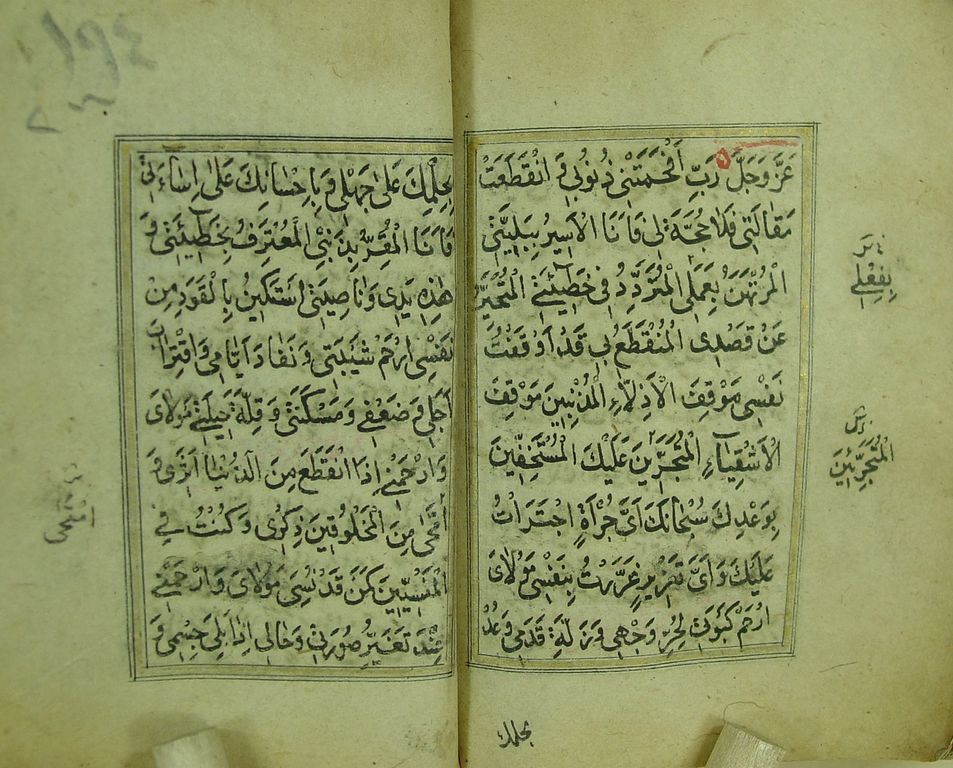 عَزَّ وَجَلَّ رَبِّ أَفْحَمَتْنِي ذُنُوبِي وَ انْقَطَعَتْ
مَقَالَتِي فَلَا حُجَّةَ لِي فَأَنَا الْأَسِيرُ بِبَلِيَّتِي
الْمُرْتَهَنُ بِعَمَلِي الْمُتَرَدِّدُ فِي خَطِيئَتِي الْمُتَحَيِّرُ
عَنْ قَصْدِي الْمُنْقَطَعُ بِي قَدْ أَوْقَفْتُ
نَفْسِي مَوْقِفَ الْأَذِلَّاءِ الْمُذْنِبِينَ مَوْقِفَ
الْأَشْقِيَاءِ الْمُتَجَرِّينَ عَلَيْكَ الْمُسْتَخِفِّينَ
بِوَعْدِكَ سُبْحَانَكَ أَيَّ جُرْأَةٍ اجْتَرَأْتُ
عَلَيْكَ وَ أَيَّ تَغْرِيرٍ غَرَّرْتُ بِنَفْسِي مَوْلَايَ
ارْحَمْ كَبْوَتِي لِحُرِّ وَجْهِي وَ زَلَّةَ قَدَمِي وَعُدْ
بِفِعْلِي
الْمُتَجَرِّئِينَ
بحلمك
بِحِلْمِكَ عَلَى جَهْلِي وَ بِإِحْسَانِكَ عَلَى إِسَاءَتِي
فَأَنَا الْمُقِرُّ بِذَنْبِي الْمُعْتَرِفُ بِخَطِيئَتِي وَ
هَذِهِ يَدِي وَ نَاصِيَتِي أَسْتَكِينُ بِالْقَوَدِ مِنْ
نَفْسِي ارْحَمْ شَيْبَتِي وَ نَفَادَ أَيَّامِي وَ اقْتِرَابَ
أَجَلِي وَ ضَعْفِي وَ مَسْكَنَتِي وَ قِلَّةَ حِيلَتِي مَوْلَايَ
وَ ارْحَمْنِي إِذَا انْقَطَعَ مِنَ الدُّنْيَا أَثَرِي وَ
أَمَّحَى مِنَ الْمَخْلُوقِينَ ذِكْرِي وَ كُنْتُ فِي
الْمَنْسِيِّينَ كَمَنْ قَدْ نُسِيَ مَوْلَايَ وَ ارْحَمْنِي
عِنْدَ تَغَيُّرِ صُورَتِي وَ حَالِي إِذَا بَلِيَ جِسْمِي وَ